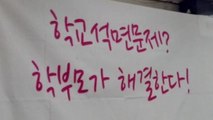 학교석면문제!?
학부모가 해결한다!